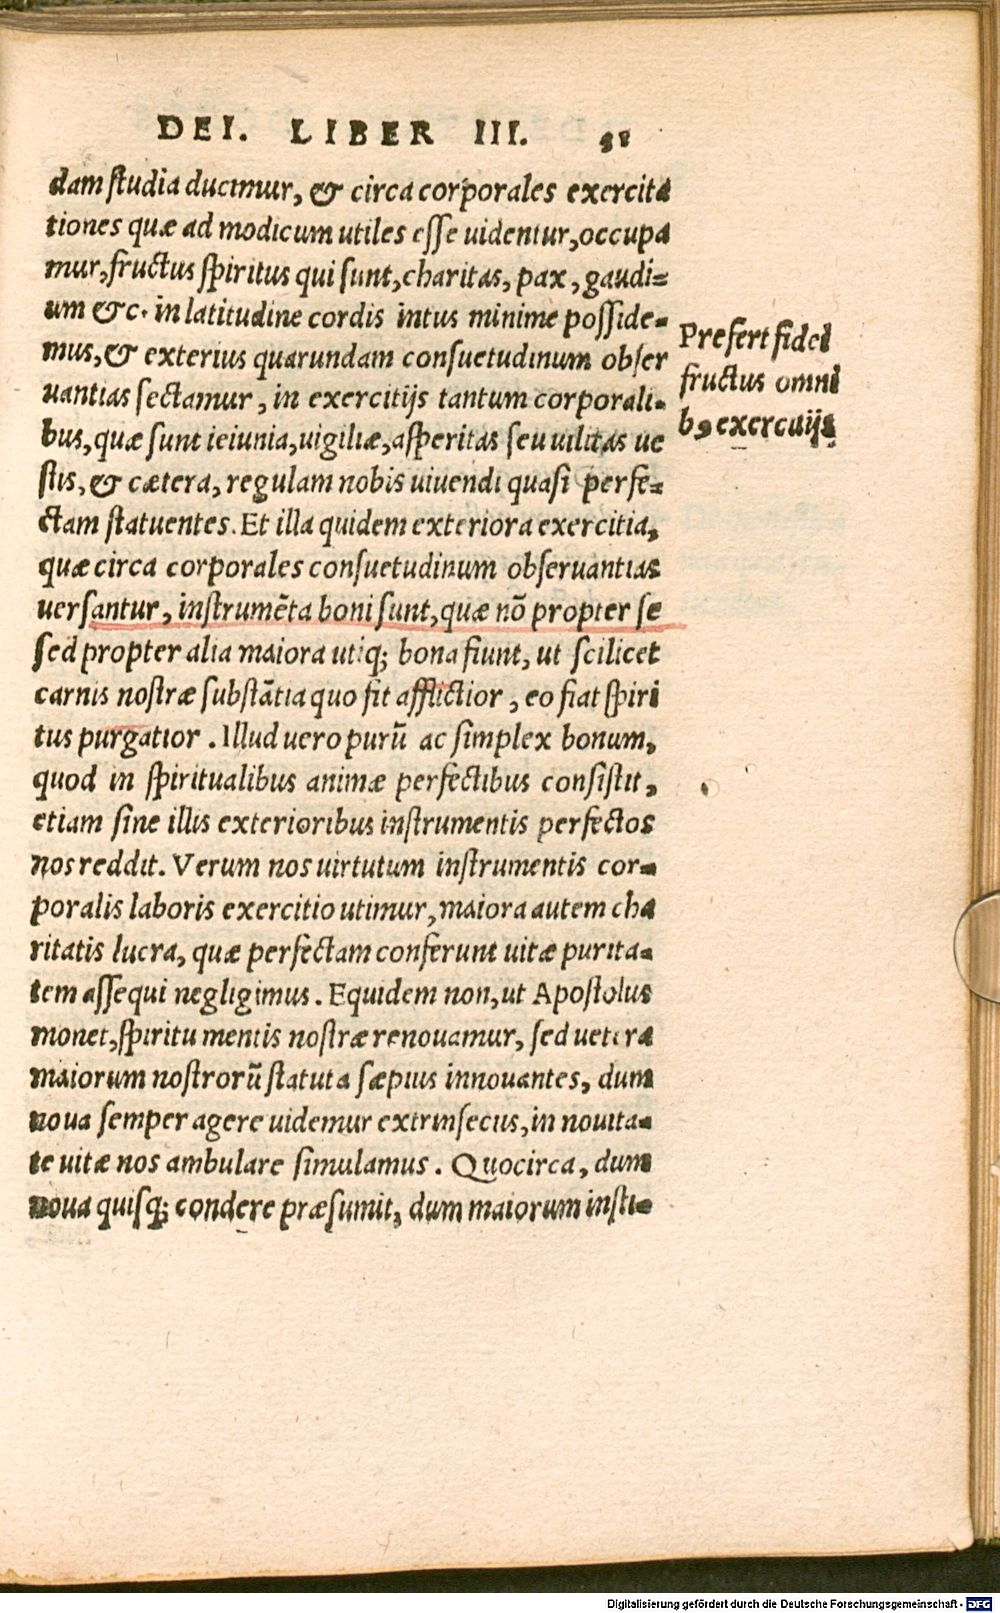 DEI. LIBER III. 51
dam studia ducimur, & circa corporales exercita
tiones quæ ad modicum utiles esse uidentur, occupa
mur, fructus spiritus qui sunt, charitas, pax, gaudi=
um &c. in latitudine cordis intus minime posside=
mus, & exterius quarundam consuetudinum obser
uantias sectamur, in exercitijs tantum corporali=
bus, quæ sunt ieiunia, uigiliæ, asperitas seu uilitas ue
stis, & cætera, regulam nobis uiuendi quasi perfe=
ctam statuentes. Et illa quidem exteriora exercitia,
quæ circa corporales consuetudinum obseruantias
uersantur, instrumēta boni sunt, quæ nō propter se
sed propter alia maiora utiq; bona fiunt, ut scilicet
carnis nostræ substātia quo fit afflictior, eo fiat spiri
tus purgatior. Illud uero purū ac simplex bonum,
quod in spiritualibus animæ perfectibus consistit,
etiam sine illis exterioribus instrumentis perfectos
nos reddit. Verum nos uirtutum instrumentis cor=
poralis laboris exercitio utimur, maiora autem cha
ritatis lucra, quæ perfectam conferunt uitæ purita=
tem assequi negligimus. Equidem non, ut Apostolus
monet, spiritu mentis nostræ renouamur, sed uetera
maiorum nostrorū statuta sæpius innouantes, dum
noua semper agere uidemur extrinsecus, in nouita=
te uitæ nos ambulare simulamus. Quocirca, dum
noua quisq; condere præsumit, dum maiorum insti=
Prefert fidei
fructus omni
b9 exercitijs
Digitalisierung gefördert durch die Deutsche Forschungsgemeinschaft - DFG